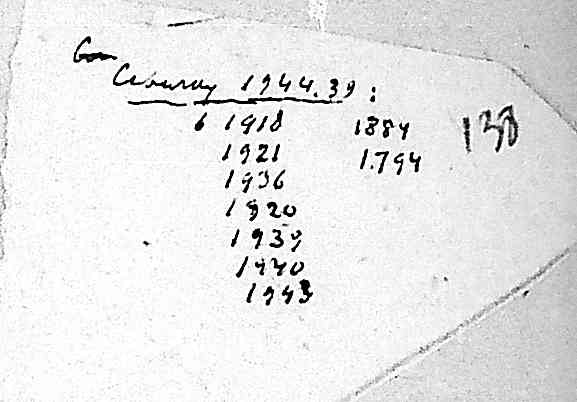 1944.39:
6 1918 1884 138
1921 1.794
1936
1820
1939
1940
1943